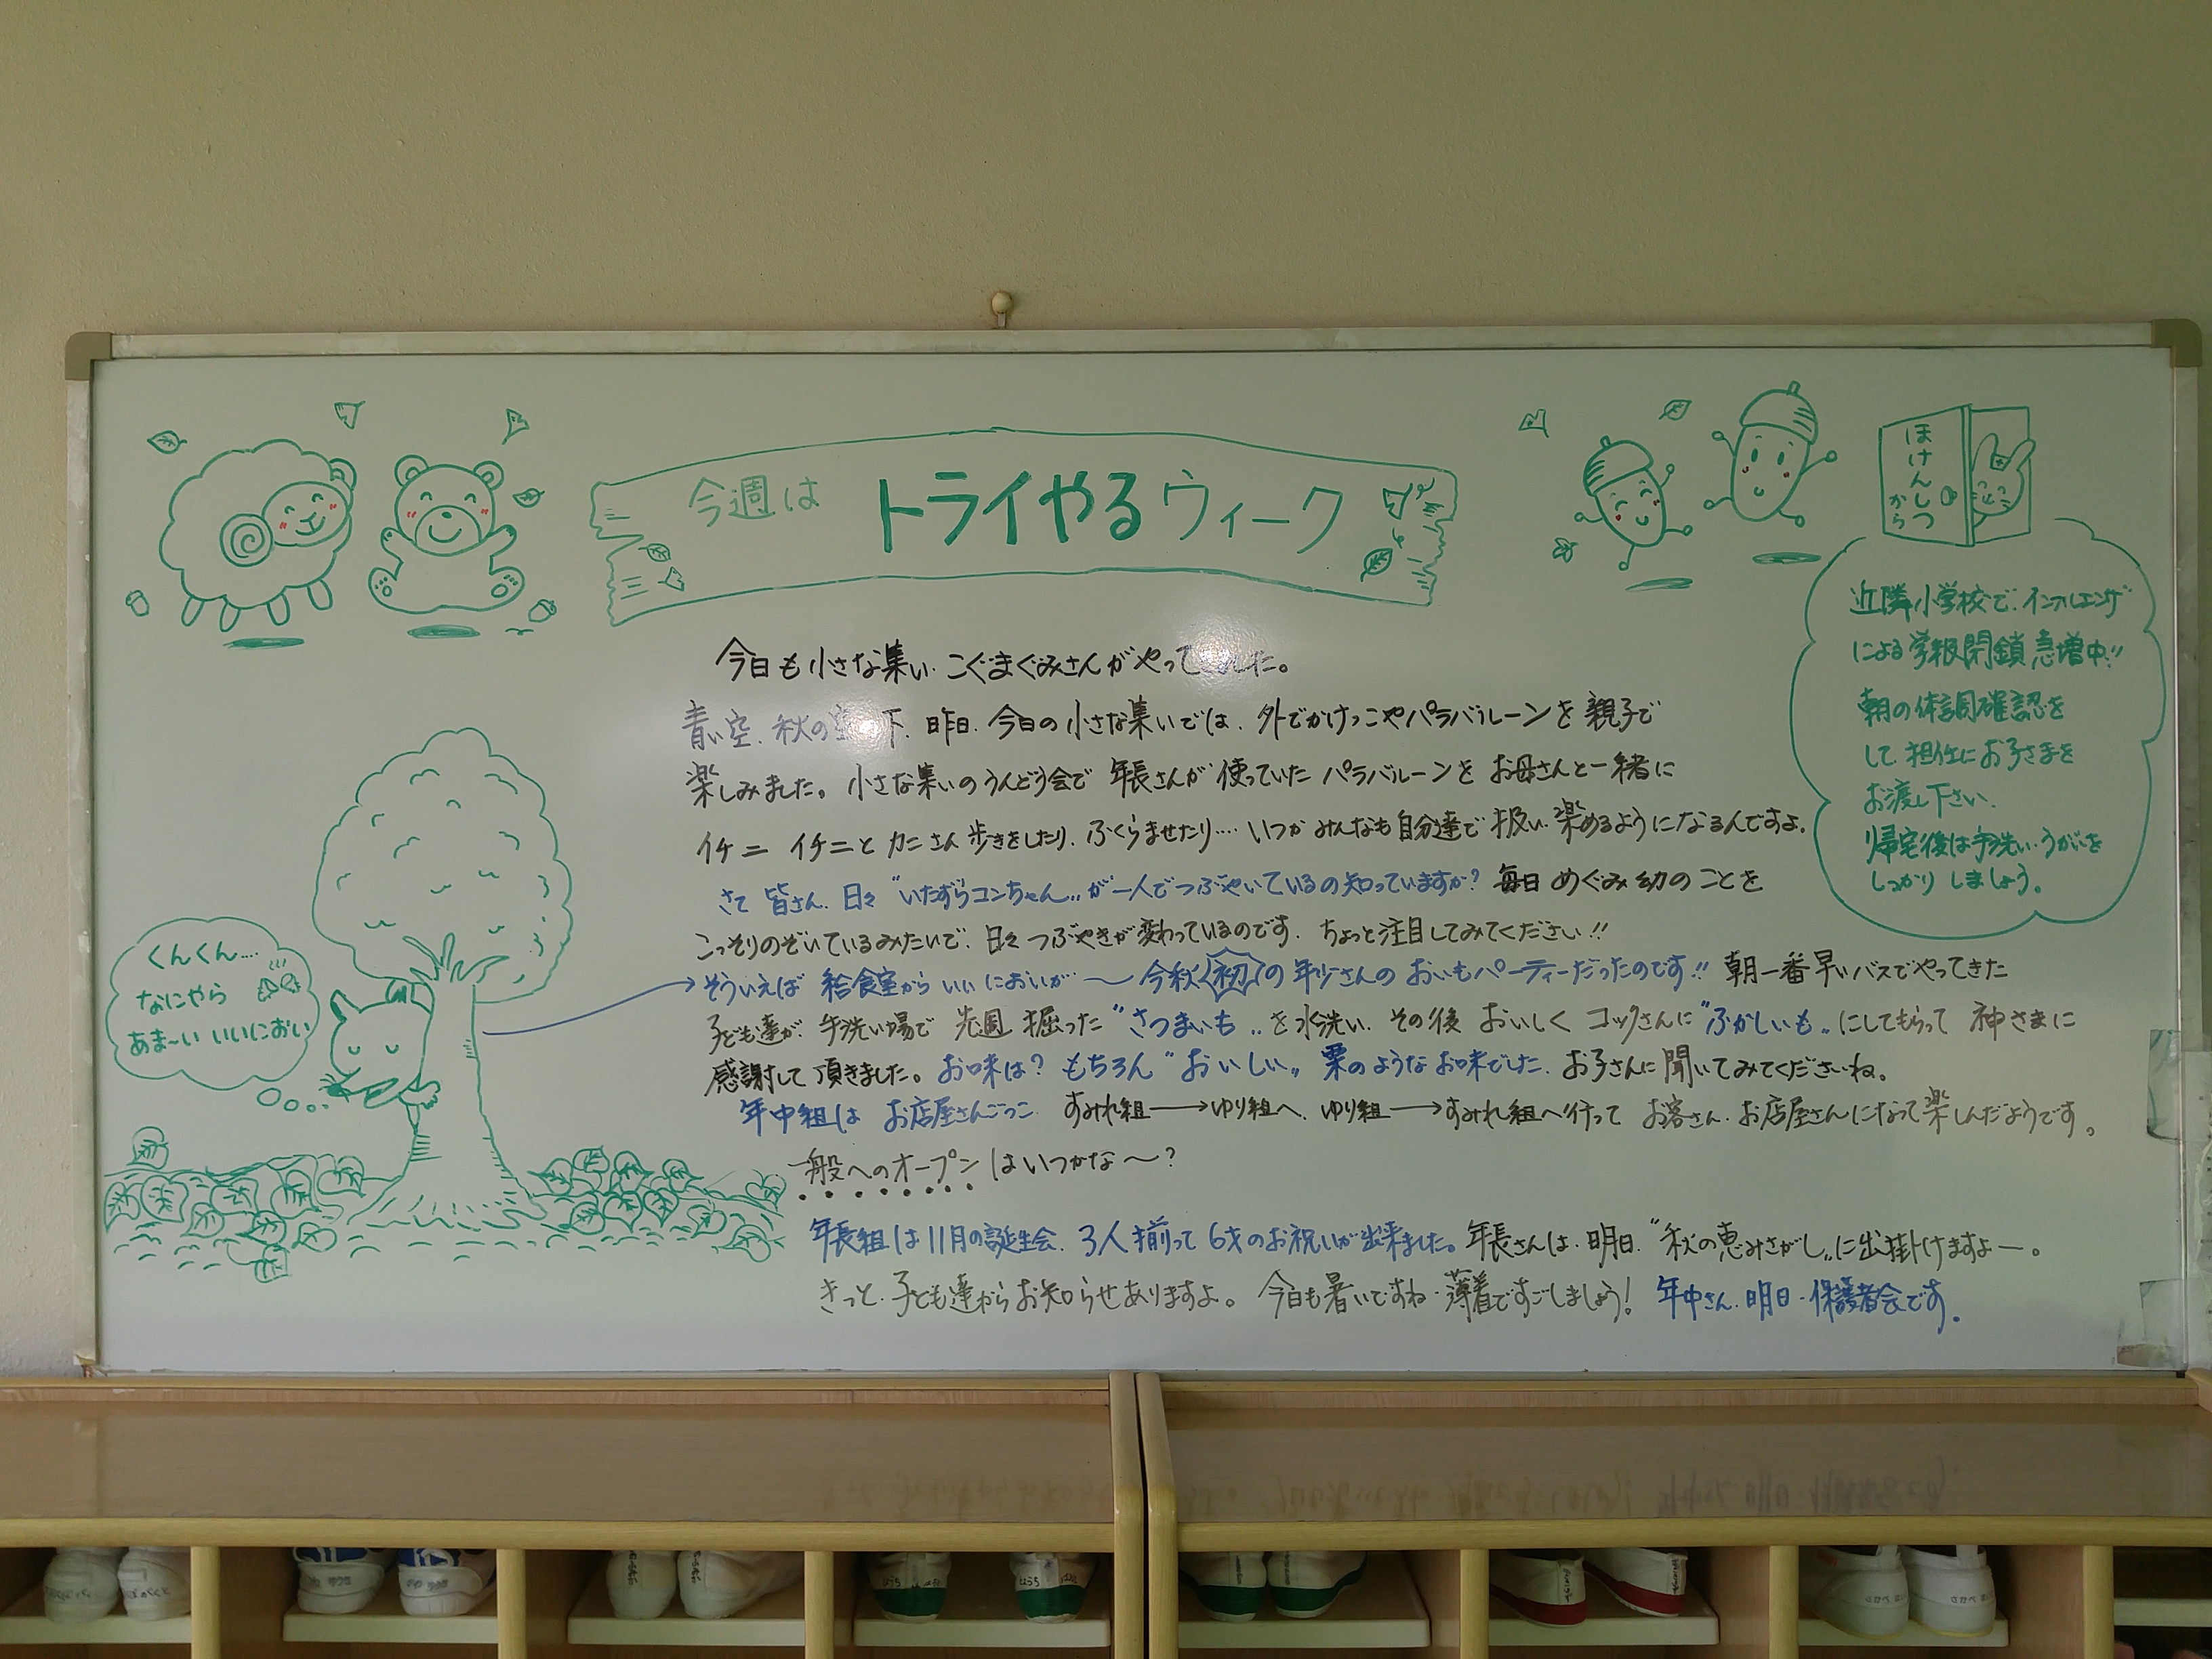 今週は トライやるウィーク
ほけんしつ
から
近隣小学校で、インフルエンザ
による学級閉鎖急増中!!
朝の体調確認を
して担任にお子さまを
お渡し下さい。
帰宅後は手洗い・うがいを
しっかりしましょう。
今日も小さな集い・こぐまぐみさんがやって した。
青い空、秋の空の下、昨日、今日の小さな集いでは、外でかけっこやパラバルーンを親子で
楽しみました。小さな集いのうんどう会で 年長さんが使っていた パラバルーンを お母さんと一緒に
イチニ イチニと カニさん歩きをしたり、ふくらませたり‥‥ いつかみんなも自分達で扱い楽めるようになるんですよ。
さて 皆さん、日々 "いたずらコンちゃん" が一人でつぶやいているの知っていますか? 毎日 めぐみ幼のことを
こっそりのぞいているみたいで、日々つぶやきが変わっているのです。ちょっと注目してみてください!!
くんくん‥‥
なにやら
あま〜い いいにおい
→そういえば 給食室から いいにおいが〜 今秋 初 の 年少さんの おいもパーティーだったのです!! 朝一番早いバスでやってきた
子ども達が、手洗い場で 先週 掘った "さつまいも" を水洗い、その後 おいしく コックさんに "ふかしいも" にしてもらって 神さまに
感謝して頂きました。お味は? もちろん "おいしい" 栗のようなお味でした。お子さんに聞いてみてくださいね。
年中組は お店屋さんごっこ すみれ組→ゆり組へ、ゆり組→すみれ組へ行って お客さん・お店屋さんになって楽しんだようです。
一般へのオープンはいつかな〜?
年長組は11月の誕生会、3人揃って6才のお祝いが出来ました。年長さんは、明日、"秋の恵みさがし" に出掛けますよー。
きっと、子ども達からお知らせありますよ。今日も暑いですね・薄着ですごしましょう! 年中さん、明日・保護者会です。